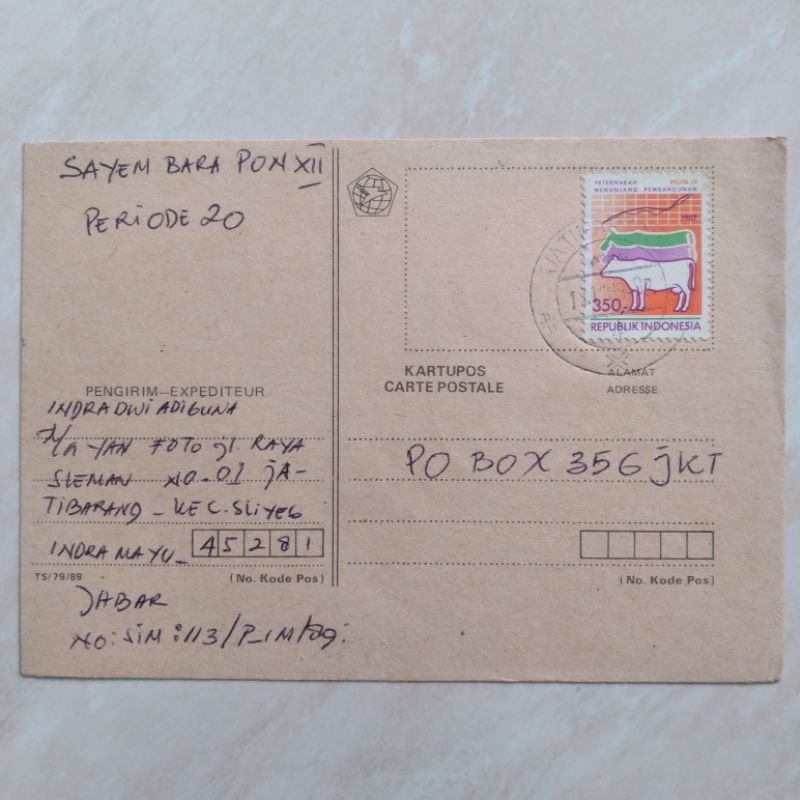 SAYEM BARA PON XII
PERIODE 20
PETERNAKAN PELITA IV
MENUNJANG PEMBANGUNAN
1987
350,-
REPUBLIK INDONESIA
KARTUPOS
CARTE POSTALE
ALAMAT
ADRESSE
PENGIRIM—EXPEDITEUR
INDRA DWI ADIGUNA
YAN FOTO Jl. RAYA
SLEMAN NO-01 JA-
TIBARANG - KEC. SLIYEG
INDRAMAYU - 45281
TS/79/89 (No. Kode Pos)
JABAR
NO: SIM: 113/P-IM/89.
PO BOX 356 JKT
(No. Kode Pos)